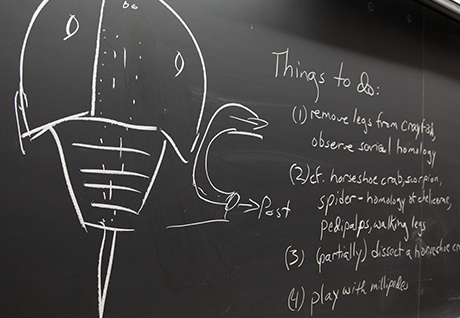 Things to do:
(1) remove legs from crayfish,
observe serial homology
(2) cf. horseshoe crab, scorpion,
spider - homology of chelicerae,
pedipalps, walking legs
(3) (partially) dissect a horseshoe cr
(4) play with millipedes
Post